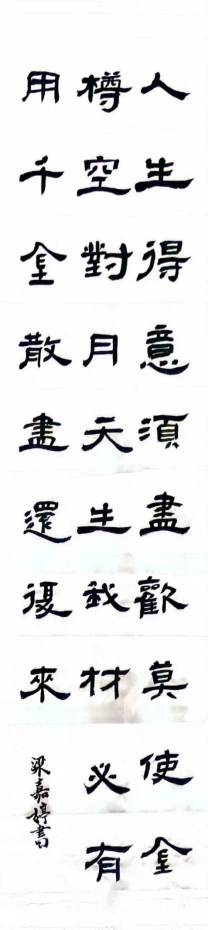 人生得意須盡歡莫使金
樽空對月天生我材必有
用千金散盡還復來
梁嘉婷書